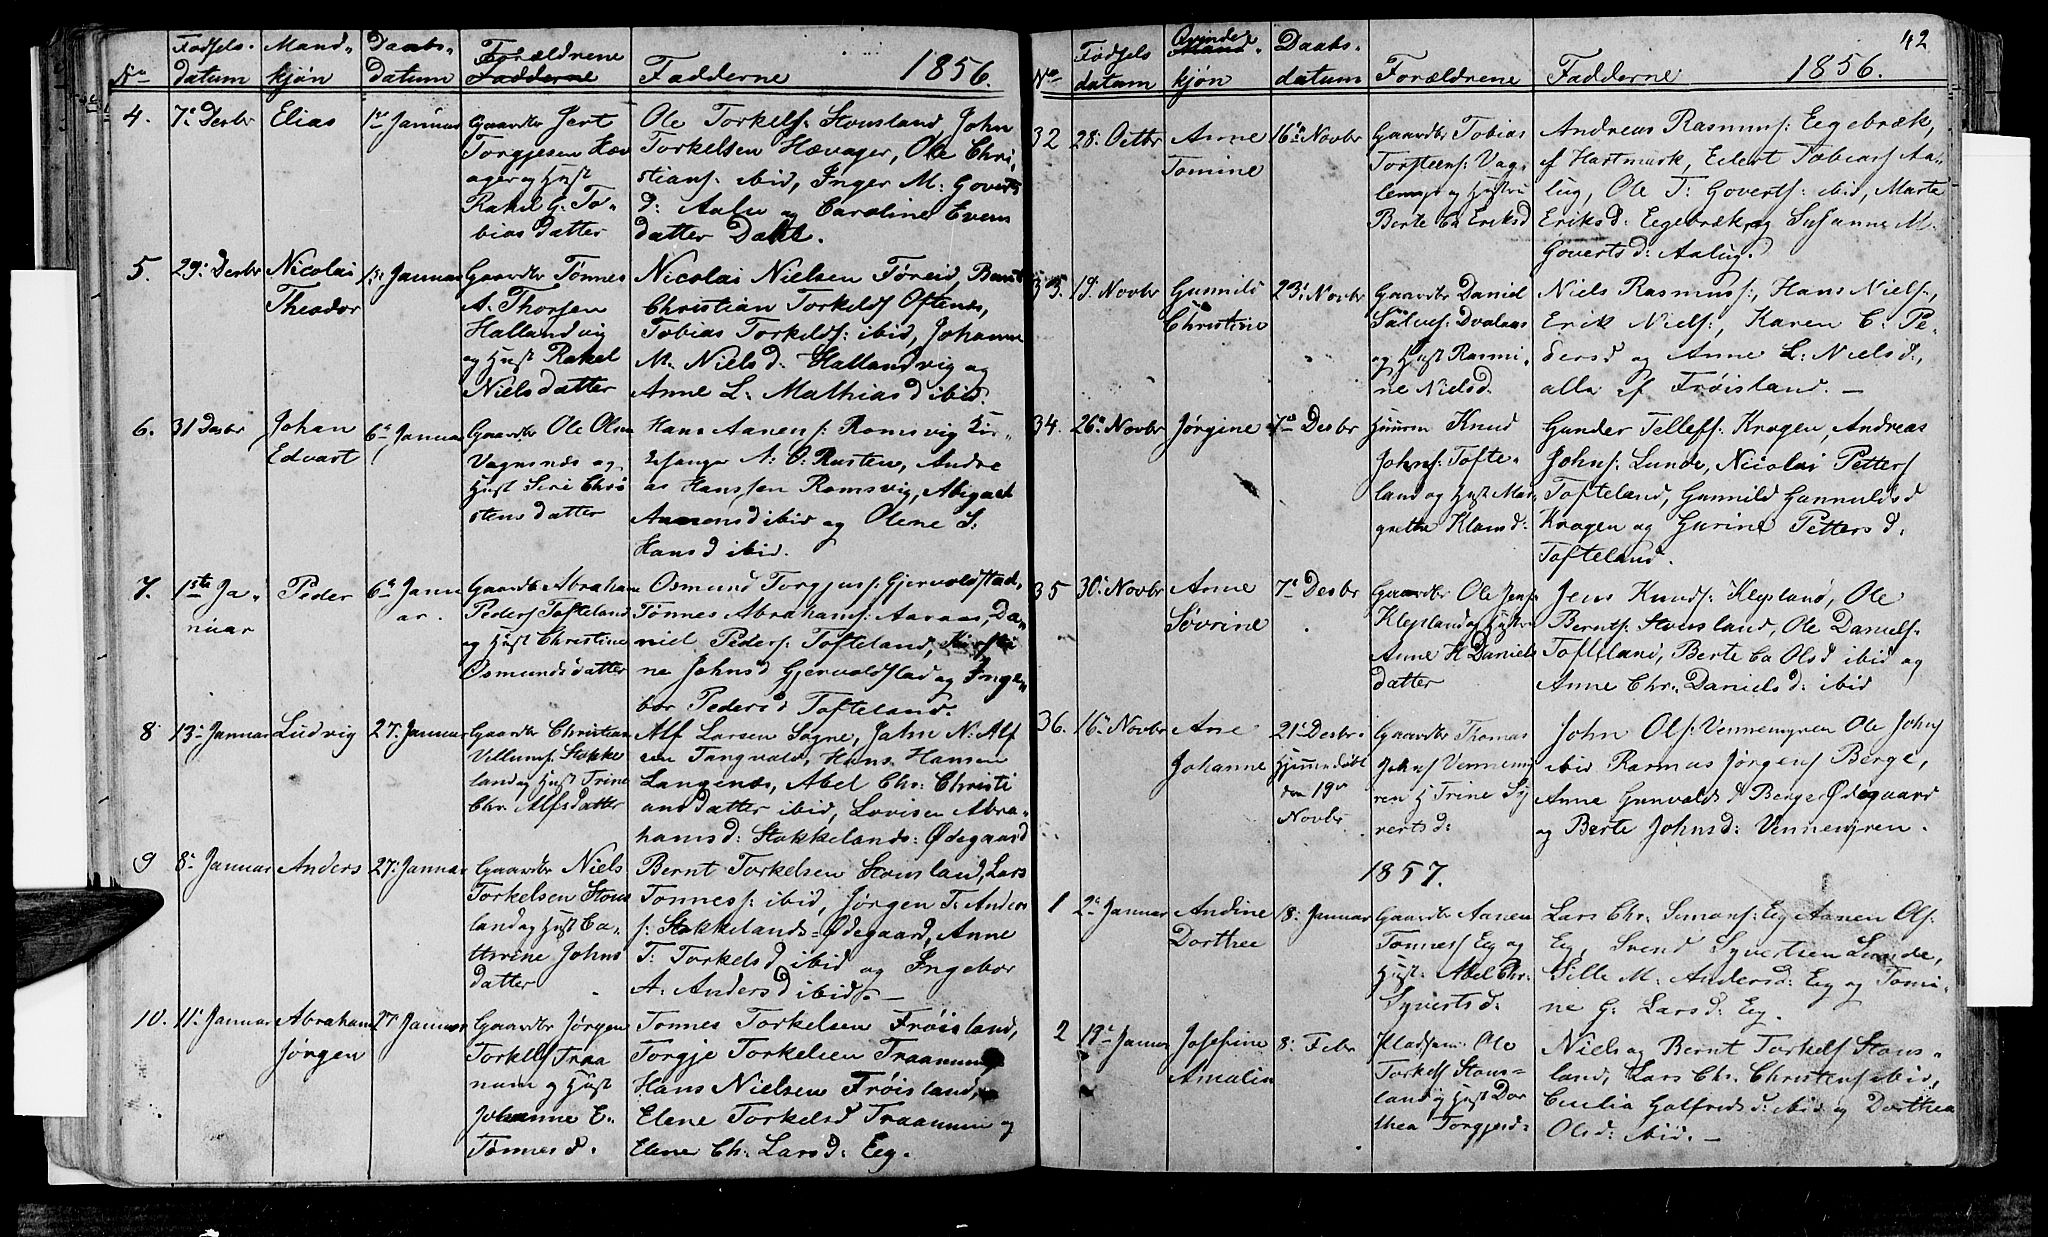 1856.
No
Fødsels-
datum
Mand-
kjøn
Daabs-
datum
Forældrene
Fadderne
Fadderne
4.
7de Desbr
Elias
1ste Januar
Gaardbr Jert
Torgjesen Hæv
ager og Hust
Rakel G. To-
bias datter
Ole Torkels: Stousland, John
Torkelsen Hævager, Ole Chri-
stians: ibid, Inger M: Goverts
d: Aalu og Caroline Evens
datter Dahl.
5.
29: Desbr
Nicolai
Theodor
13: Januar
Gaardbr Tønnes
A. Thorsen
Hallandvig
og Hust Rakel
Nielsdatter
Nicolai Nielsen Føreid,
Christian Torkelds Oftenes,
Tobias Torkelds: ibid, Johanne
M. Nielsd: Hallandvig og
Anne L. Mathiasd ibid.
6.
31 Desbr
Johan
Edvart
6te Januar
Gaardbr Ole Olsen
Vagnsnes og
Hust Siri Chri
stensdatter
Hans Aanens: Romsvig Kir-
kesanger A: O: Rusten, Andre
as Hanssen Romsvig, Abigael
Aanensd ibid og Olene S:
Hansd ibid.
7.
1ste Ja-
nuar
Peder
6te Janu
ar.
Gaardbr Abraham
Peders Tofteland
og Hust Christine
Osmundsdatter
Osmund Torgjus: Gjervoldstad,
Tønnes Abrahams: Aaraas, Da-
niel Peders: Tofteland, Kirsti
ne Johnsd Gjervoldstad og Inge-
bor Pedersd Tofteland.
8
13de Januar
Ludvig
27: Januar
Gaardbr Christian
Villums: Stokke
land og Hust Trine
Chr. Alfsdatter
Alf Larsen Søgne, Jahn N: Alf
sen Tangvald, Hans Hansen
Langenes, Abel Chr: Christi
ansdatter ibid, Lovisen Abra-
hamsd: Stokkelands: Ødegaard
9
8de Januar
Anders
27: Januar
Gaardbr Niels
Torkelsen Stous
land og Hust Ca-
thrine Johns
datter
Bernt Torkelsen Stousland, Lars
Tonness: ibid, Jørgen T: Anders
s: Stokkelands=Ødegaard, Anne
T: Torkelsd ibid og Ingebor
A. Andersd ibid. —
10.
11te Januar
Abraham
Jørgen
27: Januar
Gaardbr Jørgen
Torkels Traa
nam og Hust
Johanne E.
Tønnesd.
Tonnes Torkelsen Frøisland,
Torgje Torkelsen Traanum,
Hans Nielsen Frøisland,
Elene Torkelsd Traanum og
Elene Ch: Larsd: Eeg.
42
1856.
No
Fødsels
datum
Qvinde-
Mand-
kjøn
Daabs-
datum
Forældrene
Fadderne
32
28: Octbr
Anne
Tomine
16de Novbr
Gaardbr Tobias
Torsteens: Vag-
lemoe og Hustru
Berte Ca Eriksd
Andreas Rasmus: Eegebræk,
af Hartmark, Eilert Tobias: Aa-
lug, Ole T: Goverts: ibid, Marte
Eriksd: Eegebræk og Susanne M.
Govertsd: Aalug.
33.
19: Novbr
Gunnild
Christine
23: Novbr
Gaardbr Daniel
Salves: Dvalaas
og Hust Rasmi-
ne Nielsd.
Niels Rasmuss:, Hans Niels:,
Erik Niels:, Karen C: Pe-
dersd og Anne L: Nielsd:,
alle af Frøisland. —
34.
26de Novbr
Jørgine
7de Desbr
Knud
Johns: Tofte-
land og Hust Mar-
grethe Klamd:
Gunder Tellefs: Kragen, Andreas
Johns: Lunde, Nicolai Petters
Tofteland, Gunnild Gunnuldsd
Kragen og Gurine Pettersd:
Tofteland.
35
30: Novbr
Anne
Sovrine
7de Desbr
Gaardbr Ole Jens
Klepland og Hustr
Anne K Daniels
datter
Jens Knuds: Klepland, Ole
Bernts: Stousland, Ole Daniels-
Tofteland, Berte Ca Olsd ibid og
Anne Chr: Danielsd: ibid
36.
16de Novbr
Ane
Johanne
21: Desbr-
hjemmedøbt
den 19de
Novbr.
Gaardbr Thomas
Johns Vennemy
ren H Trine Sy
vertsd:
John Ols: Vennemyren Ole Johns
ibid Rasmus Jørgens Berge,
Anna Gunvaldsd Berge Ødegaard
og Berte Johnsd: Vennemyren.
1857.
1
2de Januar
Andine
Dorthee
8: Januar
Gaardbr Aanen
Tonness Eeg og
Hust: Abel Chr.
Syvertsd:
Lars Chr. Simons: Eeg Aanen Ols:
Eeg, Svend Syvertsen Lunde,
Sille M. Andersd: Eeg og Tomi-
ne G. Larsd: Eeg.
2
19de Januar
Josefine
Amalia
8: Febr
Pladsem: Ole
Torkels Stous-
land og Hust Dor
thea Torgjusd-
Niels og Bernt Torkels Stous-
land, Lars Chr. Christens ibid,
Cecilia Gotfredsd: ibid og Dorthea
Olsd: ibid. —